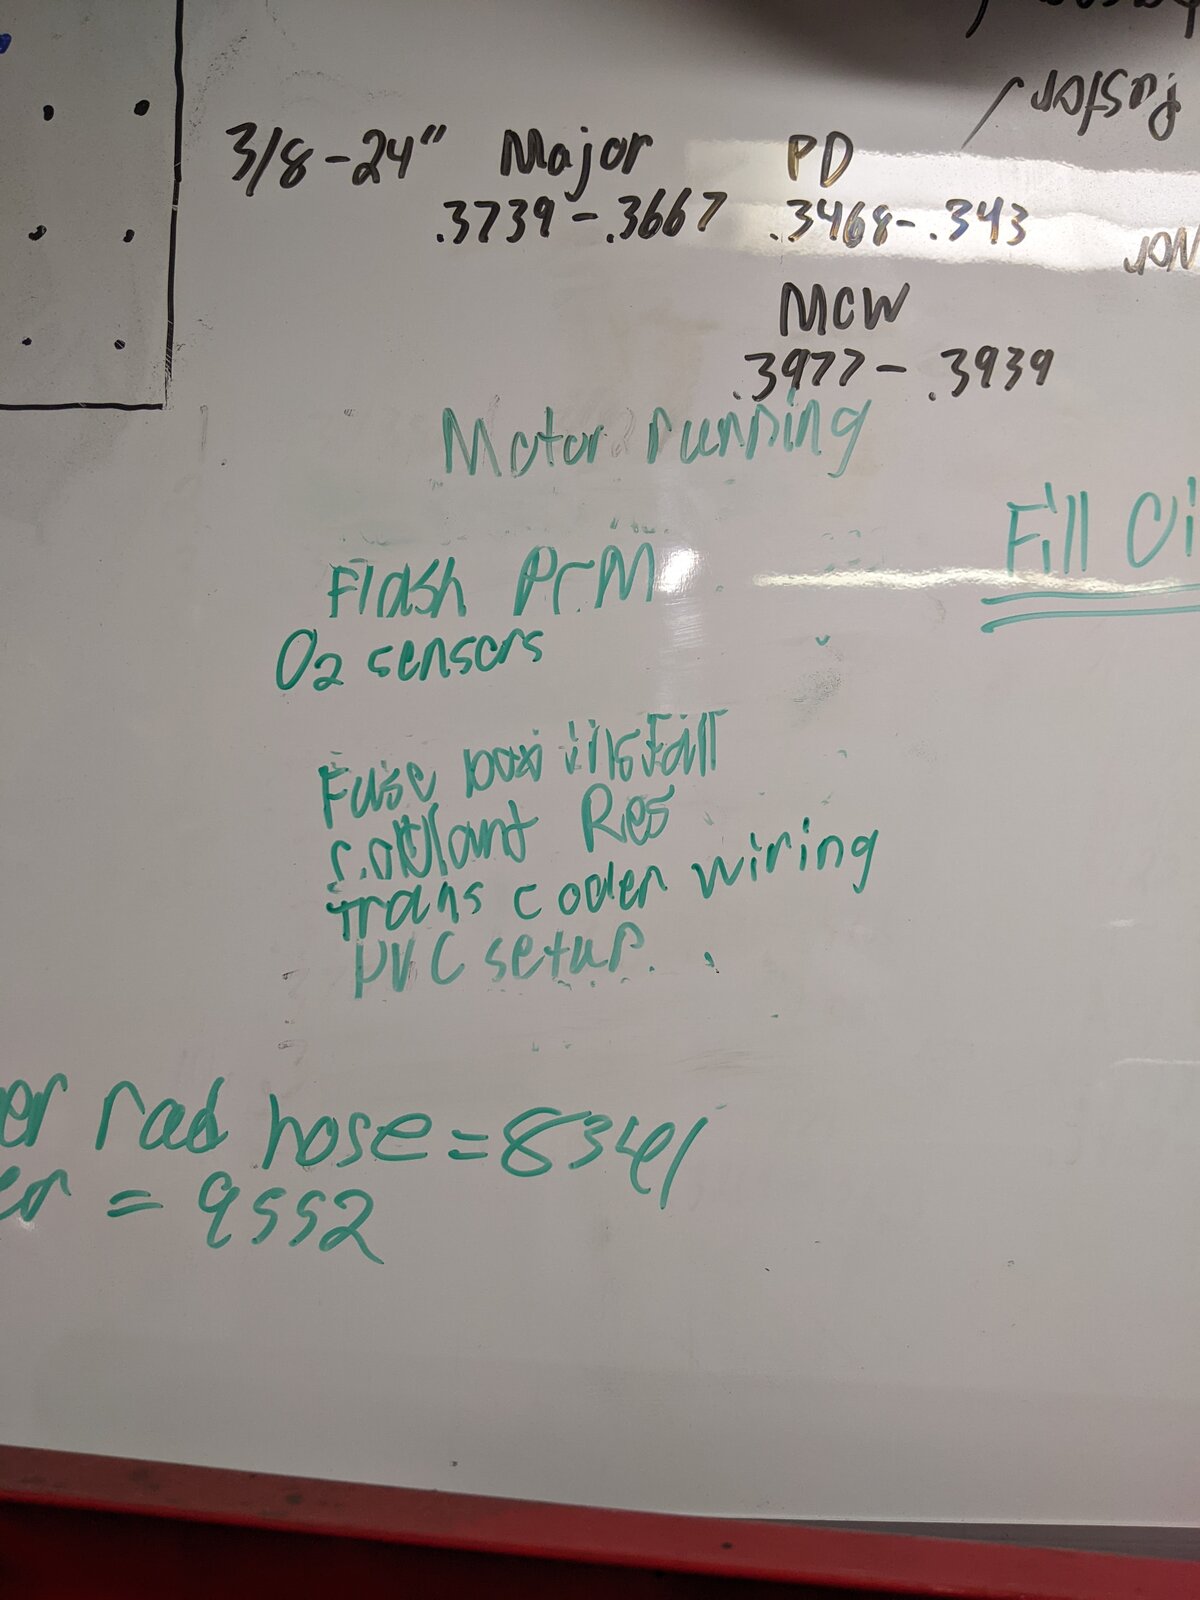 Faster
3/8-24" Major PD
.3739-.3667 .3468-.343
MCW
.3977- .3939
Motor running
Fill Oi
Flash PCM
O2 sensors
Fuse box install
coolant Res
trans coder wiring
PVC setup
er rad hose = 8341
er = 9552